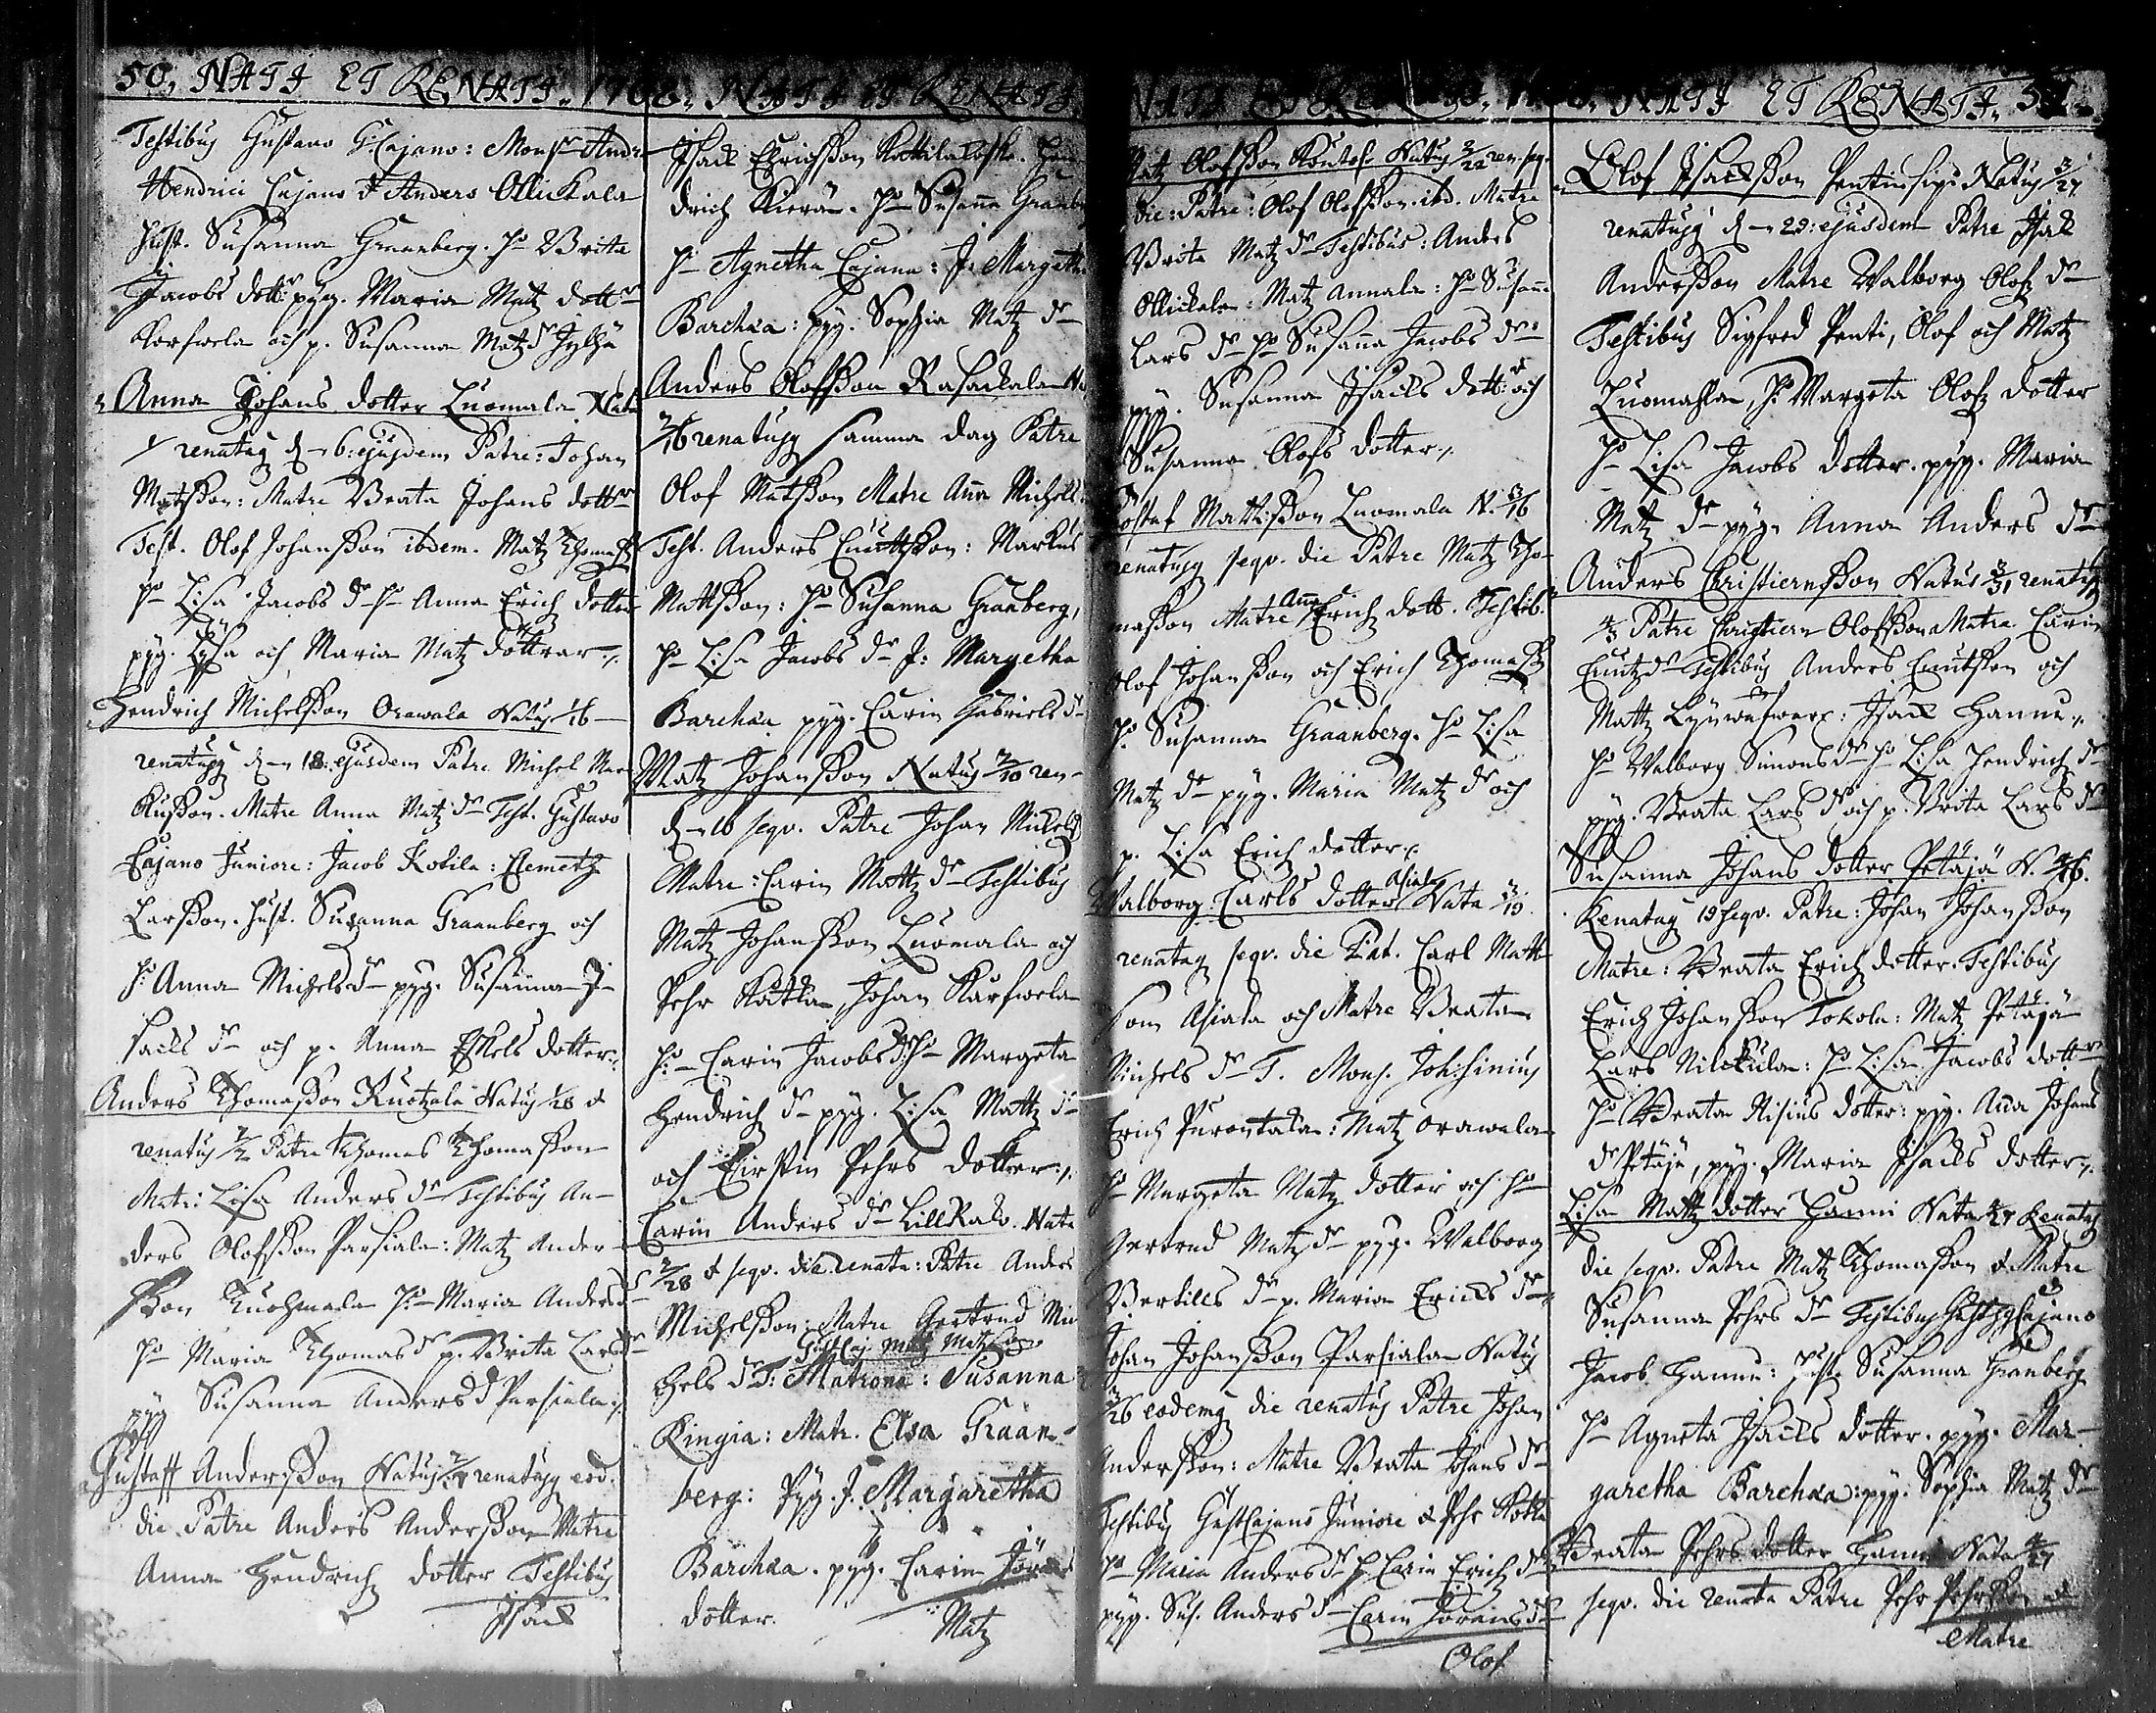 50, NATI ET RENATI, 1708, NATI ET RENATI
Testibus Gustavo G: Cajano: Monsr And.
Hendrici Cajano & Anders Ollickala
Hust. Susanna Graanberg. Ho Brita
Jacobs dottr pyg. Maria Matz dottr
Korfwela och p. Susanna Matz dr
Anna Johans dotter Luomala Nata
renatag d 6: ejusdem Patre: Johan
Matsson: Matre Beata Johans dottr
Test. Olof Johansson ibdem. Matz Thomass
Ho Lisa Jacobs dr Ho Anna Erich dotter
pyg. Lisa och Maria Matz döttrar
Hendrich Michelsson Orawala Natus 1/16
renatus d 18: ejusdem Patre Michel Mar
kusson. Matre Anna Matz dr Test. Gustavo
Cajano Juniore: Jacob Kotila: Clemetz
Larsson. Hust. Susanna Graanberg och
Ho Anna Michels dr pyg. Susanna I
sacks dr och p. Anna Eskels dotter
Anders Thomasson Ruotzala Natus 1/28 &
renatus 2/2 Patre Thomas Thomasson
Matr: Lisa Anders dr Testibus An-
ders Olofsson Parsiala: Matz Ander-
sson Kuohmala Ho Maria Anders d
Ho Maria Thomas dr p. Brita Lars dr
pyg Susanna Anders d Parsiala
Gustaff Andersson Natus renatus eod.
die Patre Anders Andersson Matre
Anna Hendrich dotter Testibus
Isack
Isack Erichsson Kottila Hen
drich. Ho Susanna Graanb
Ho Agnetha Cajana: J: Margeth.
Barchaa: pyg. Sophia Matz dr
Anders Olofsson Rasackala
2/16 renatus samma dag Patre
Olof Matsson Matre Anna Michels
Test. Anders Cnuttsson: Markus
Mattsson: Ho Susanna Granberg,
Ho Lisa Jacobs dr J: Margetha
Barchaa pyg. Carin Gabriels dr
Matz Johansson Natus 2/10 ren-
d 16 seqv. Patre Johan Michels
Matre: Carin Mattz dr Testibus
Matz Johansson Luomala och
Pehr Kottka, Johan Karfwela
Ho Carin Jacobs dr Ho Margeta
Hendrich dr pyg. Lisa Mattz dr
och Kirstin Pehrs dotter
Carin Anders dr Lillkalo. Nata
2/28 & seqv. die renata: Patre Anders
Michelsson: Matre Gertrud Mi
chels dr T: Matrona: Susanna
Kingia: Matr. Elsa Graan-
berg: Pyg. J. Margaretha
Barchaa. pyg. Carin
dotter.
Matz
NATI ET RENATI, NATI ET RENATI. 51
Matz Olofsson Natus 2/22 ren. seq.
die: Patre: Olof Olofsson. ibd. Matre
Brita Matz dr Testibus: Anders
Ollickala: Matz Annala: Ho Susanna
Lars dr Ho Susanna Jacobs dr
pyg. Susanna Isacks dott. och
Susanna Olofs dotter
Göstaf Mattisson Luomala N. 3/16
renatus seqv. die Patre Matz Tho-
masson Matre Anna Erich dott. Testib.
Olof Johansson och Erich Thomass
Ho Susanna Graanberg. Ho Lisa
Matz dr pyg. Maria Matz dr och
p. Lisa Erich dotter
Walborg Carls dotter Asiala Nata 3/19
renatag seqv. die Pat. Carl Matt
son Asiala och Matre Beata
Michels dr T. Mons. Joh:
Erich Purontaka: Matz Orawala
Ho Margeta Matz dotter och Ho
Gertrud Matz dr pyg. Walborg
Bertills dr p. Maria Ericks dr
Johan Johansson Parsiala Natus
3/26 eodemq die renatus Patre Johan
Andersson: Matre Beata Johans dr
Testibus Gust Cajano Juniore & Pehr Kotka
Ho Maria Anders dr H Carin Erich dr
pyg. Sus. Anders dr Carin Jörans dr
Olof
Olof Isacksson Natus 3/27
renatus d 29: ejusdem Patre Isak
Andersson Matre Walborg Olofz dr
Testibus Sigfred Penti, Olof och Matz
Luomahla, Ho Margeta Olofz dotter
Ho Lisa Jacobs dotter. pyg. Maria
Matz dr pyg. Anna Anders dr
Anders Christiernsson Natus 3/31 renatus
4/3 Patre Christiern Olofsson Matre Carin
Cnutz dr Testibus Anders Cnutsson och
Mattz: Isack Hannu
Ho Walborg Simons dr Ho Lisa Hendrich dr
pyg. Beata Lars dr och p. Brita Lars dr
Susanna Johans dotter Petäjä N. 4/16.
Renatag 19 seqv. Patre: Johan Johansson
Matre: Beata Erich dotter. Testibus
Erich Johansson Tokola: Matz Petäjä
Lars Nilckula: Ho Lisa Jacobs dottr
Ho Beata Nisius dotter: pyg. Anna Johans
dr Petäjä, pyg. Maria Isacks dotter
Lisa Mattz dotter Hannu Nata 4/27 Renatag
die seqv. Patre Matz Thomasson & Matre
Susanna Pehrs dr Testibus Cajano
Jacob Hannu: Hust. Susanna Granberg
Ho Agneta Isacks dotter. pyg. Mar-
garetha Barchaa: pyg. Sophia Matz dr
Beata Pehrs dotter Hannu Nata 4/27
seqv. die renata Patre Pehr Pehrsson
Matre